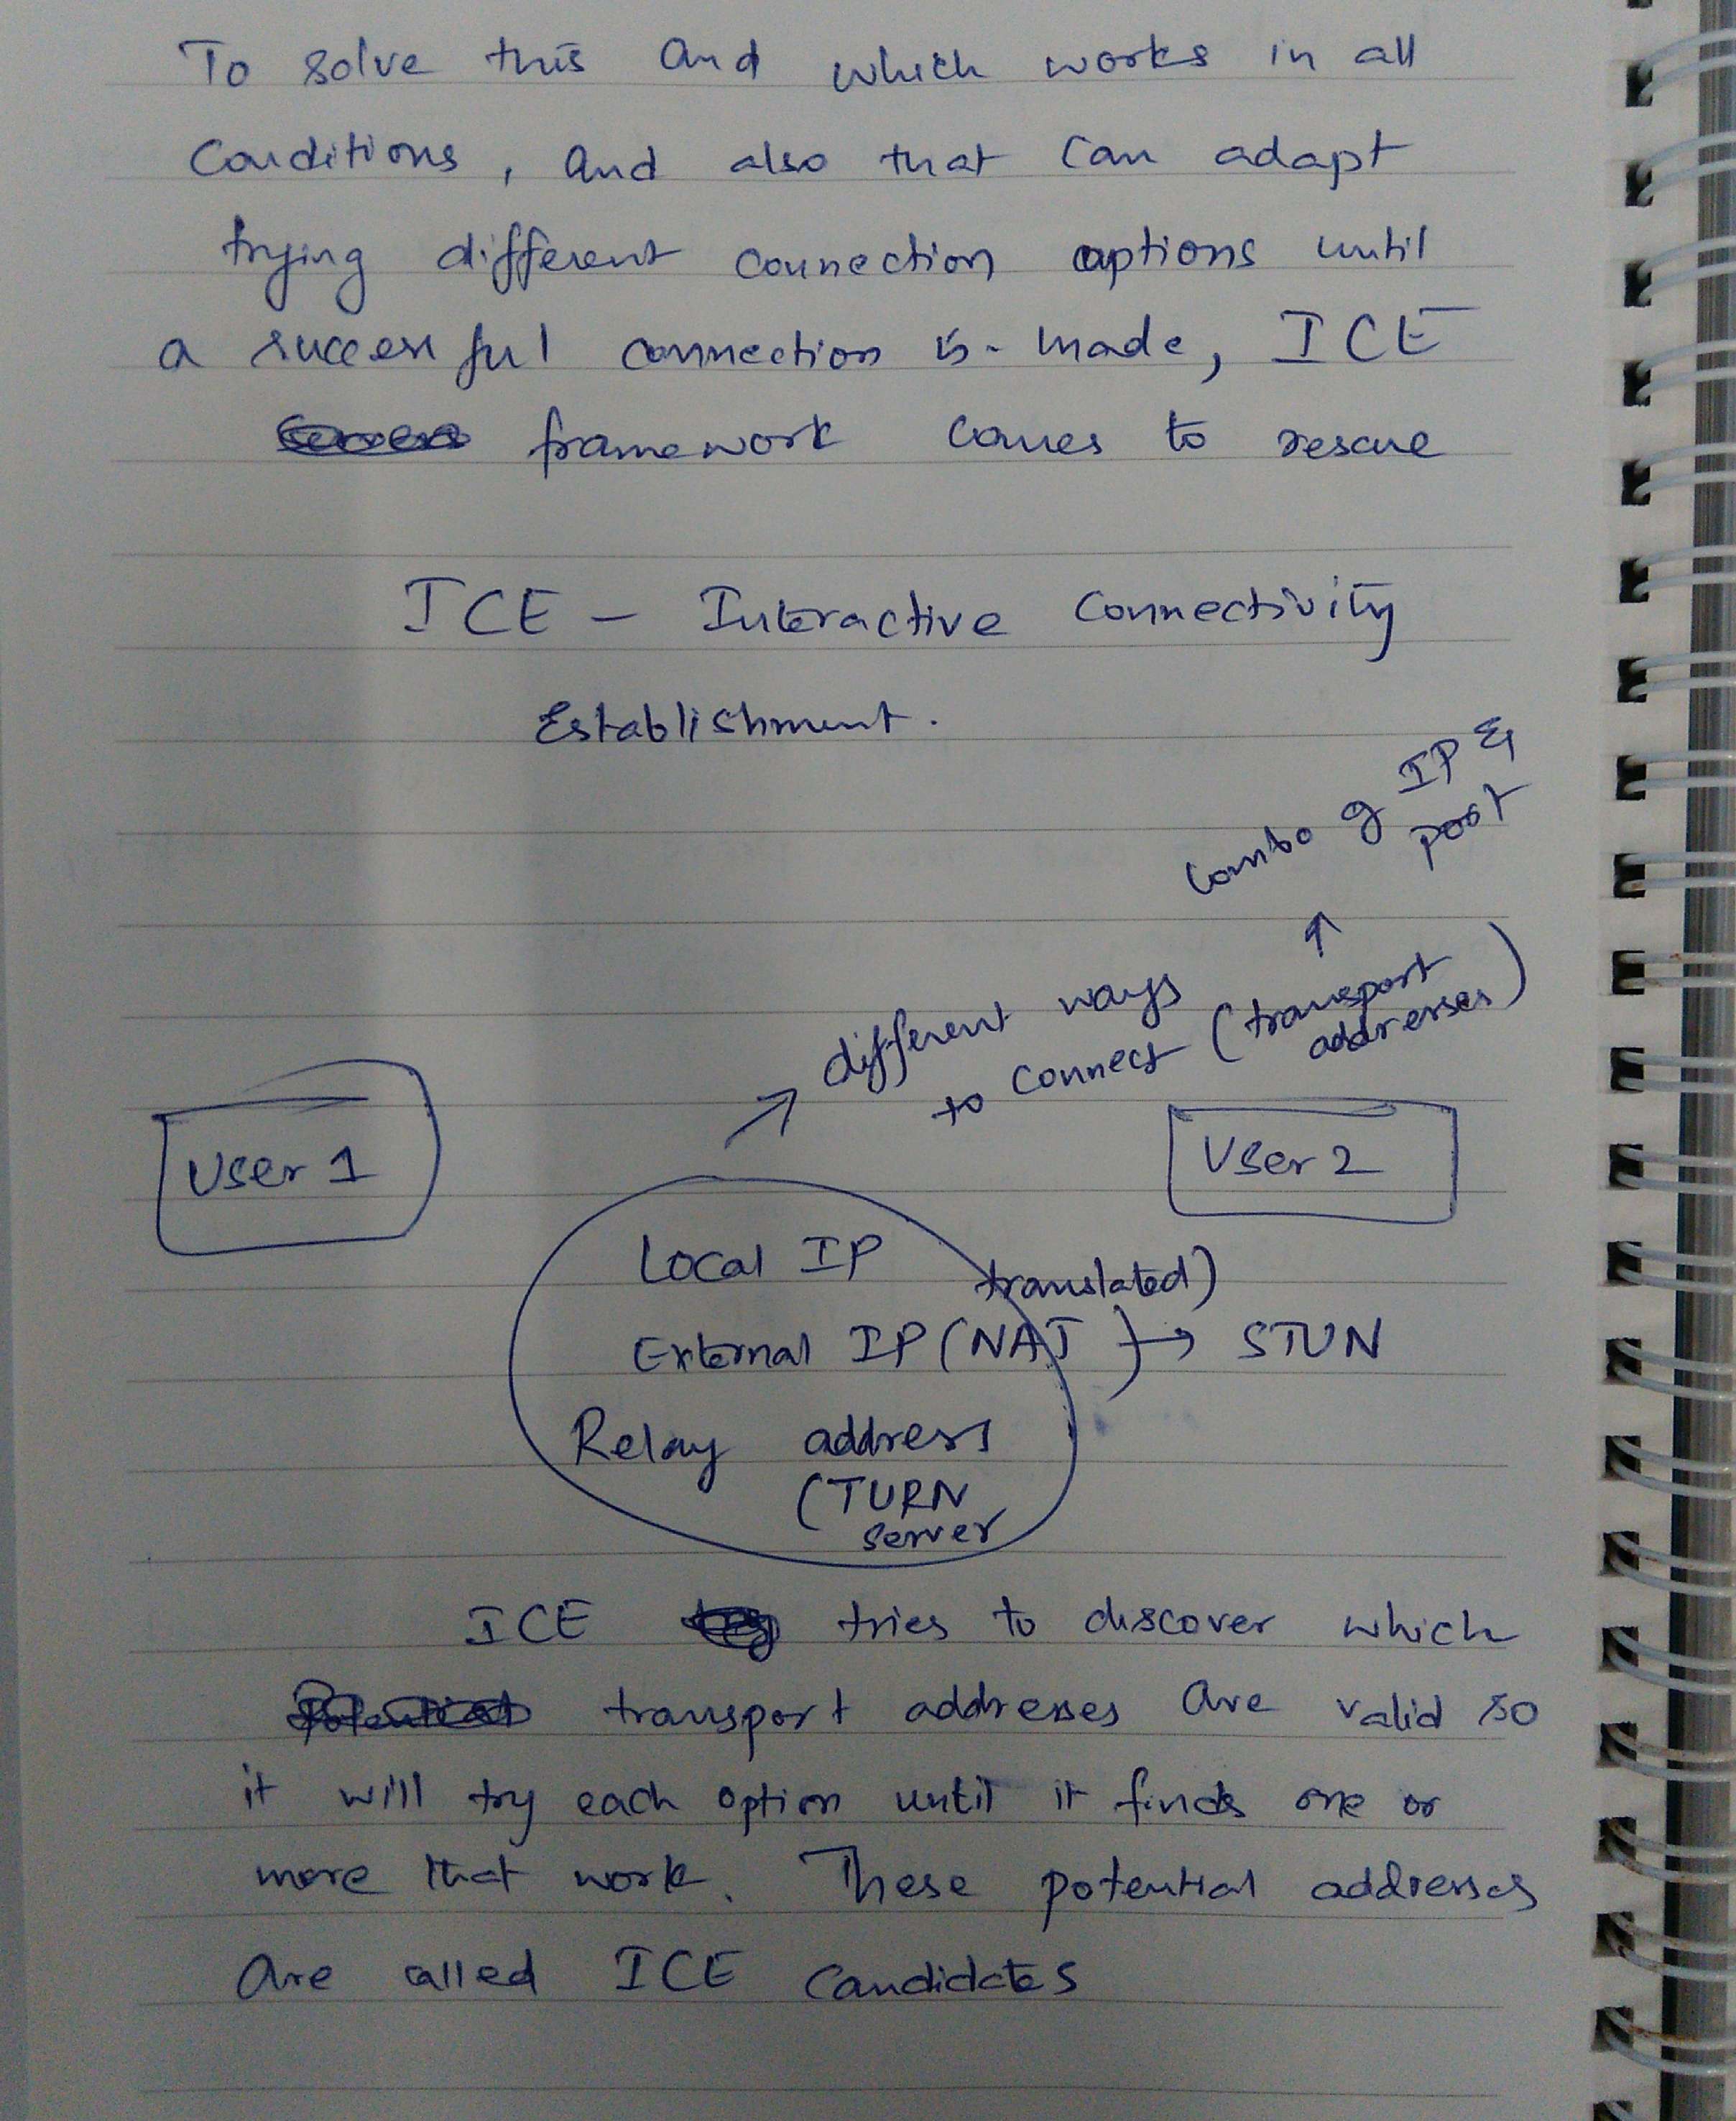 To solve this and which works in all
Conditions, and also that can adapt
trying different connection options until
a successful connection is made, ICE
framework comes to rescue
ICE - Interactive Connectivity
Establishment.
combo of IP &
port
different ways
to connect (transport
addresses)
User 1
User 2
Local IP
translated)
External IP (NAT } → STUN
Relay address
(TURN
server
ICE tries to discover which
transport addresses are valid so
it will try each option until it finds one or
more that work. These potential addresses
are called ICE candidates